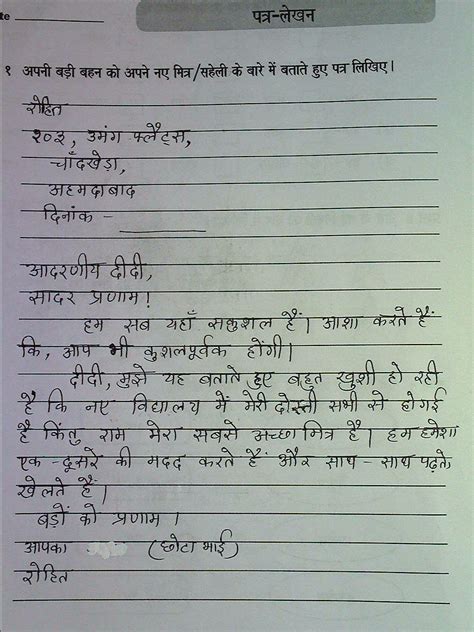 te
पत्र-लेखन
१ अपनी बड़ी बहन को अपने नए मित्र/सहेली के बारे में बताते हुए पत्र लिखिए।
रोहित
२०३, उमंग फ्लैट्स,
चाँदखेड़ा,
अहमदाबाद
दिनांक -
आदरणीय दीदी,
सादर प्रणाम!
हम सब यहाँ सकुशल हैं। आशा करते हैं
कि, आप भी कुशलपूर्वक होंगी।
दीदी, मुझे यह बताते हुए बहुत खुशी हो रही
है कि नए विद्यालय में मेरी दोस्ती सभी से होगई
है किंतु राम मेरा सबसे अच्छा मित्र है। हम हमेशा
एक-दूसरे की मदद करते हैं और साथ-साथ पढ़ते,
खेलते हैं।
बड़ों को प्रणाम ।
आपका (छोटा भाई)
रोहित